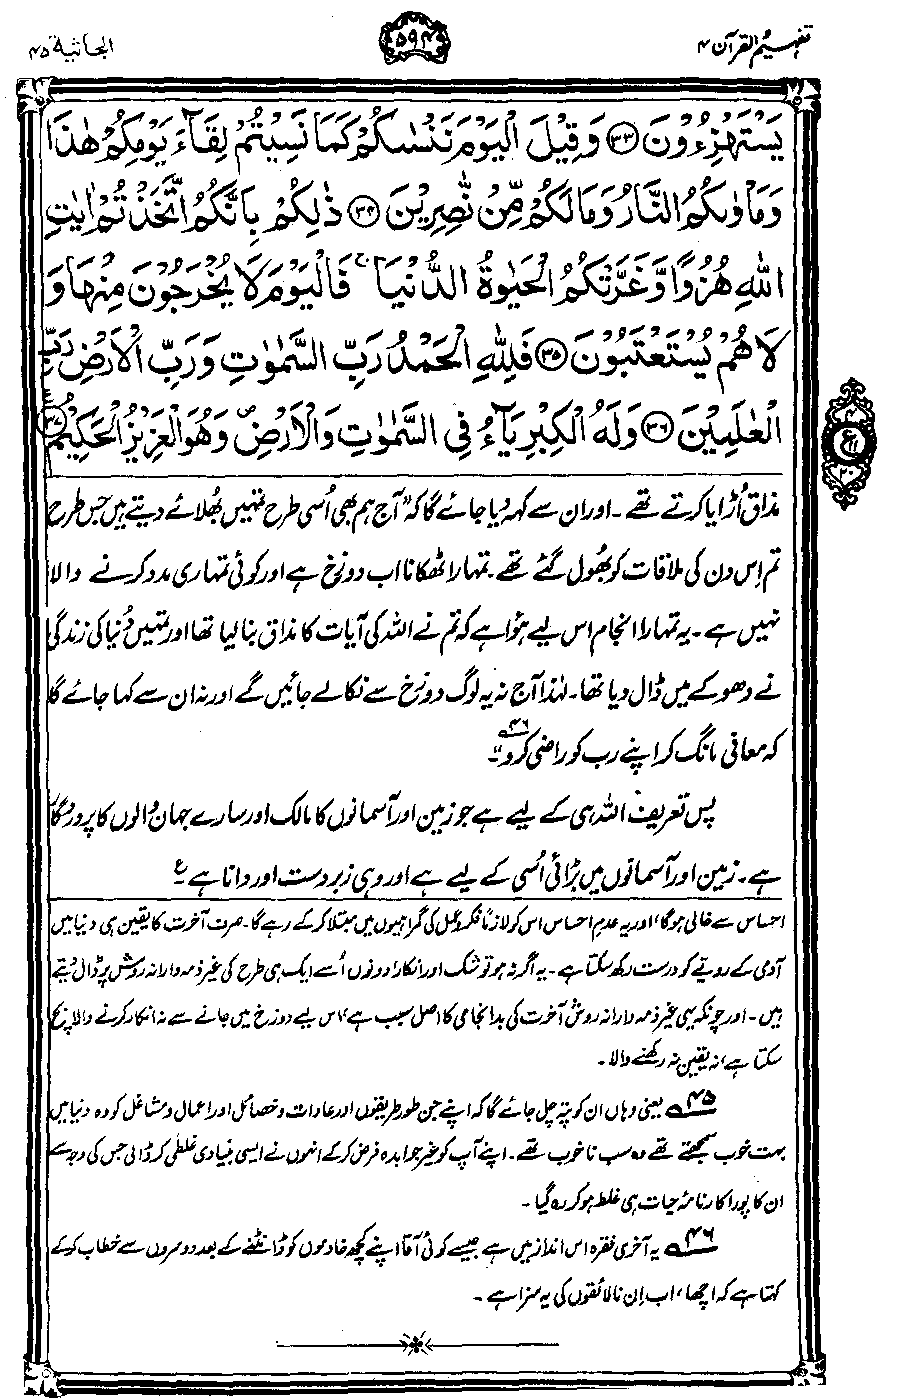 تفہیم القرآن ۴
۵۹۴
الجاثیۃ ۴۵
يَسْتَهْزِءُوْنَ ﴿۳۳﴾ وَقِيْلَ الْيَوْمَ نَنْسٰىكُمْ كَمَا نَسِيْتُمْ لِقَآءَ يَوْمِكُمْ هٰذَا
وَمَاْوٰىكُمُ النَّارُ وَمَا لَكُمْ مِّنْ نّٰصِرِيْنَ ﴿۳۴﴾ ذٰلِكُمْ بِاَنَّكُمُ اتَّخَذْتُمْ اٰيٰتِ
اللّٰهِ هُزُوًا وَّغَرَّتْكُمُ الْحَيٰوةُ الدُّنْيَا ۚ فَالْيَوْمَ لَا يُخْرَجُوْنَ مِنْهَا وَ
لَا هُمْ يُسْتَعْتَبُوْنَ ﴿۳۵﴾ فَلِلّٰهِ الْحَمْدُ رَبِّ السَّمٰوٰتِ وَرَبِّ الْاَرْضِ رَبِّ
الْعٰلَمِيْنَ ﴿۳۶﴾ وَلَهُ الْكِبْرِيَآءُ فِي السَّمٰوٰتِ وَالْاَرْضِ ۖ وَهُوَ الْعَزِيْزُ الْحَكِيْمُ ﴿۳۷﴾
مذاق اُڑایا کرتے تھے۔ اور ان سے کہہ دیا جائے گا کہ ”آج ہم بھی اُسی طرح تمہیں بھُلائے دیتے ہیں جس طرح
تم اِس دن کی ملاقات کو بھُول گئے تھے۔ تمہارا ٹھکانا اب دوزخ ہے اور کوئی تمہاری مدد کرنے والا
نہیں ہے۔ یہ تمہارا انجام اس لیے ہوا ہے کہ تم نے اللہ کی آیات کا مذاق بنا لیا تھا اور تمہیں دُنیا کی زندگی
نے دھوکے میں ڈال دیا تھا۔ لہٰذا آج نہ یہ لوگ دوزخ سے نکالے جائیں گے اور نہ ان سے کہا جائے گا
کہ معافی مانگ کر اپنے رب کو راضی کرو۔“ ۴۶
پس تعریف اللہ ہی کے لیے ہے جو زمین اور آسمانوں کا مالک اور سارے جہان والوں کا پروردگار
ہے۔ زمین اور آسمانوں میں بڑائی اُسی کے لیے ہے اور وہی زبردست اور دانا ہے۔ ع
احساس سے خالی ہوگا، اور یہ عدمِ احساس اس کو لازماً فکر و عمل کی گمراہیوں میں مبتلا کر کے رہے گا۔ صرف آخرت کا یقین ہی دنیا میں
آدمی کے رویے کو درست رکھ سکتا ہے۔ یہ اگر نہ ہو تو شک اور انکار دونوں اُسے ایک ہی طرح کی غیر ذمہ دارانہ روش پر ڈال دیتے
ہیں۔ اور چونکہ یہی غیر ذمہ دارانہ روش آخرت کی بدانجامی کا اصل سبب ہے، اس لیے دوزخ میں جانے سے نہ انکار کرنے والا بچ
سکتا ہے، نہ یقین نہ رکھنے والا۔
۴۵ یعنی وہاں ان کو پتہ چل جائے گا کہ اپنے جن طور طریقوں اور عادات و خصائل اور اعمال و مشاغل کو وہ دنیا میں
بہت خوب سمجھتے تھے وہ سب ناخوب تھے۔ اپنے آپ کو غیر جوابدہ فرض کر کے انہوں نے ایسی بنیادی غلطی کر ڈالی جس کی وجہ سے
ان کا پورا کارنامۂ حیات ہی غلط ہو کر رہ گیا۔
۴۶ یہ آخری فقرہ اس انداز میں ہے جیسے کوئی آقا اپنے کچھ خادموں کو ڈانٹنے کے بعد دوسروں سے خطاب کر کے
کہتا ہے کہ اچھا، اب اِن نالائقوں کی یہ سزا ہے۔